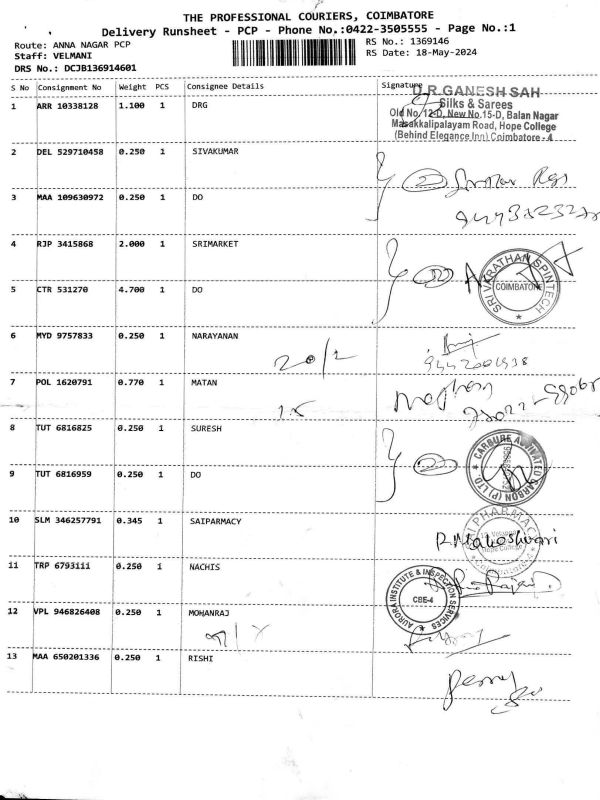 THE PROFESSIONAL COURIERS, COIMBATORE
Delivery Runsheet - PCP - Phone No.:0422-3505555 - Page No.:1
Route: ANNA NAGAR PCP
Staff: VELMANI
DRS No.: DCJB136914601
RS No.: 1369146
RS Date: 18-May-2024
S No Consignment No Weight PCS Consignee Details Signature
1 ARR 10338128 1.100 1 DRG
U.R.GANESH SAH
Silks & Sarees
Old No.12-D, New No.15-D, Balan Nagar
Masakkalipalayam Road, Hope College
(Behind Elegance Inn) Coimbatore - 4
2 DEL 529710458 0.250 1 SIVAKUMAR
3 MAA 109630972 0.250 1 DO
4 RJP 3415868 2.000 1 SRIMARKET
SRI VARATHAN SPINTECH
COIMBATORE
5 CTR 531270 4.700 1 DO
6 MYD 9757833 0.250 1 NARAYANAN
7 POL 1620791 0.770 1 MATAN
8 TUT 6816825 0.250 1 SURESH
CARBURE ACTIVATED CARBON (P) LTD
9 TUT 6816959 0.250 1 DO
10 SLM 346257791 0.345 1 SAIPARMACY
R.Maheshwari
11 TRP 6793111 0.250 1 NACHIS
AURORA INSTITUTE & INSPECTION SERVICES
CBE-4
12 VPL 946826408 0.250 1 MOHANRAJ
13 MAA 650201336 0.250 1 RISHI